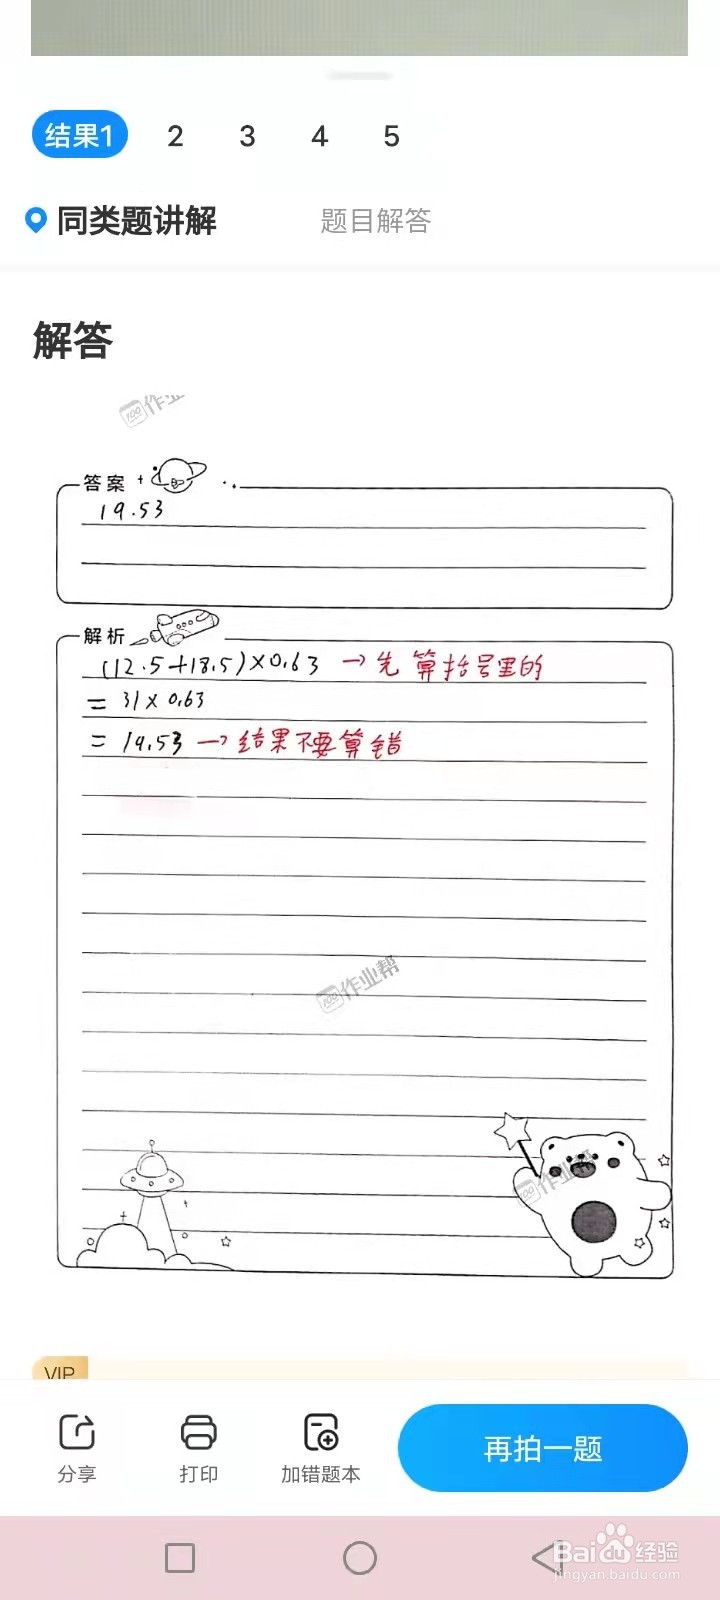 结果1 2 3 4 5
同类题讲解 题目解答
解答
作业
答案
19.53
解析
(12.5+18.5)×0.63 →先算括号里的
= 31×0.63
= 19.53 →结果不要算错
100作业帮
作业帮
VIP
再拍一题
分享 打印 加错题本
Baidu经验
jingyan.baidu.com